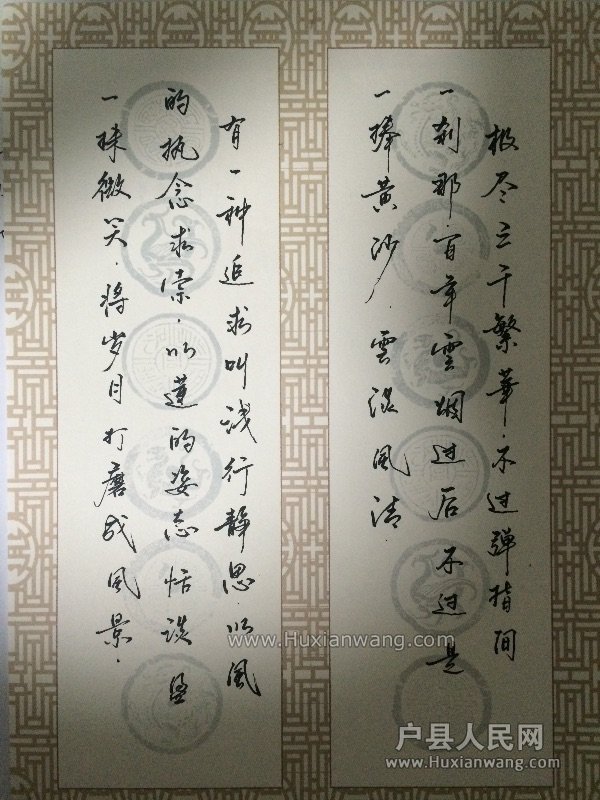 极尽三千繁華.不过弹指间
一刹那.百年雲烟过后不过是
一捧黄沙.雲淡风清
有一种追求叫浅行静思.以风
的执念求索.以蓮的姿态恬淡.盈
一抹微笑.将岁月打磨成风景.
www.Huxianwang.com
户县人民网
www.Huxianwang.com